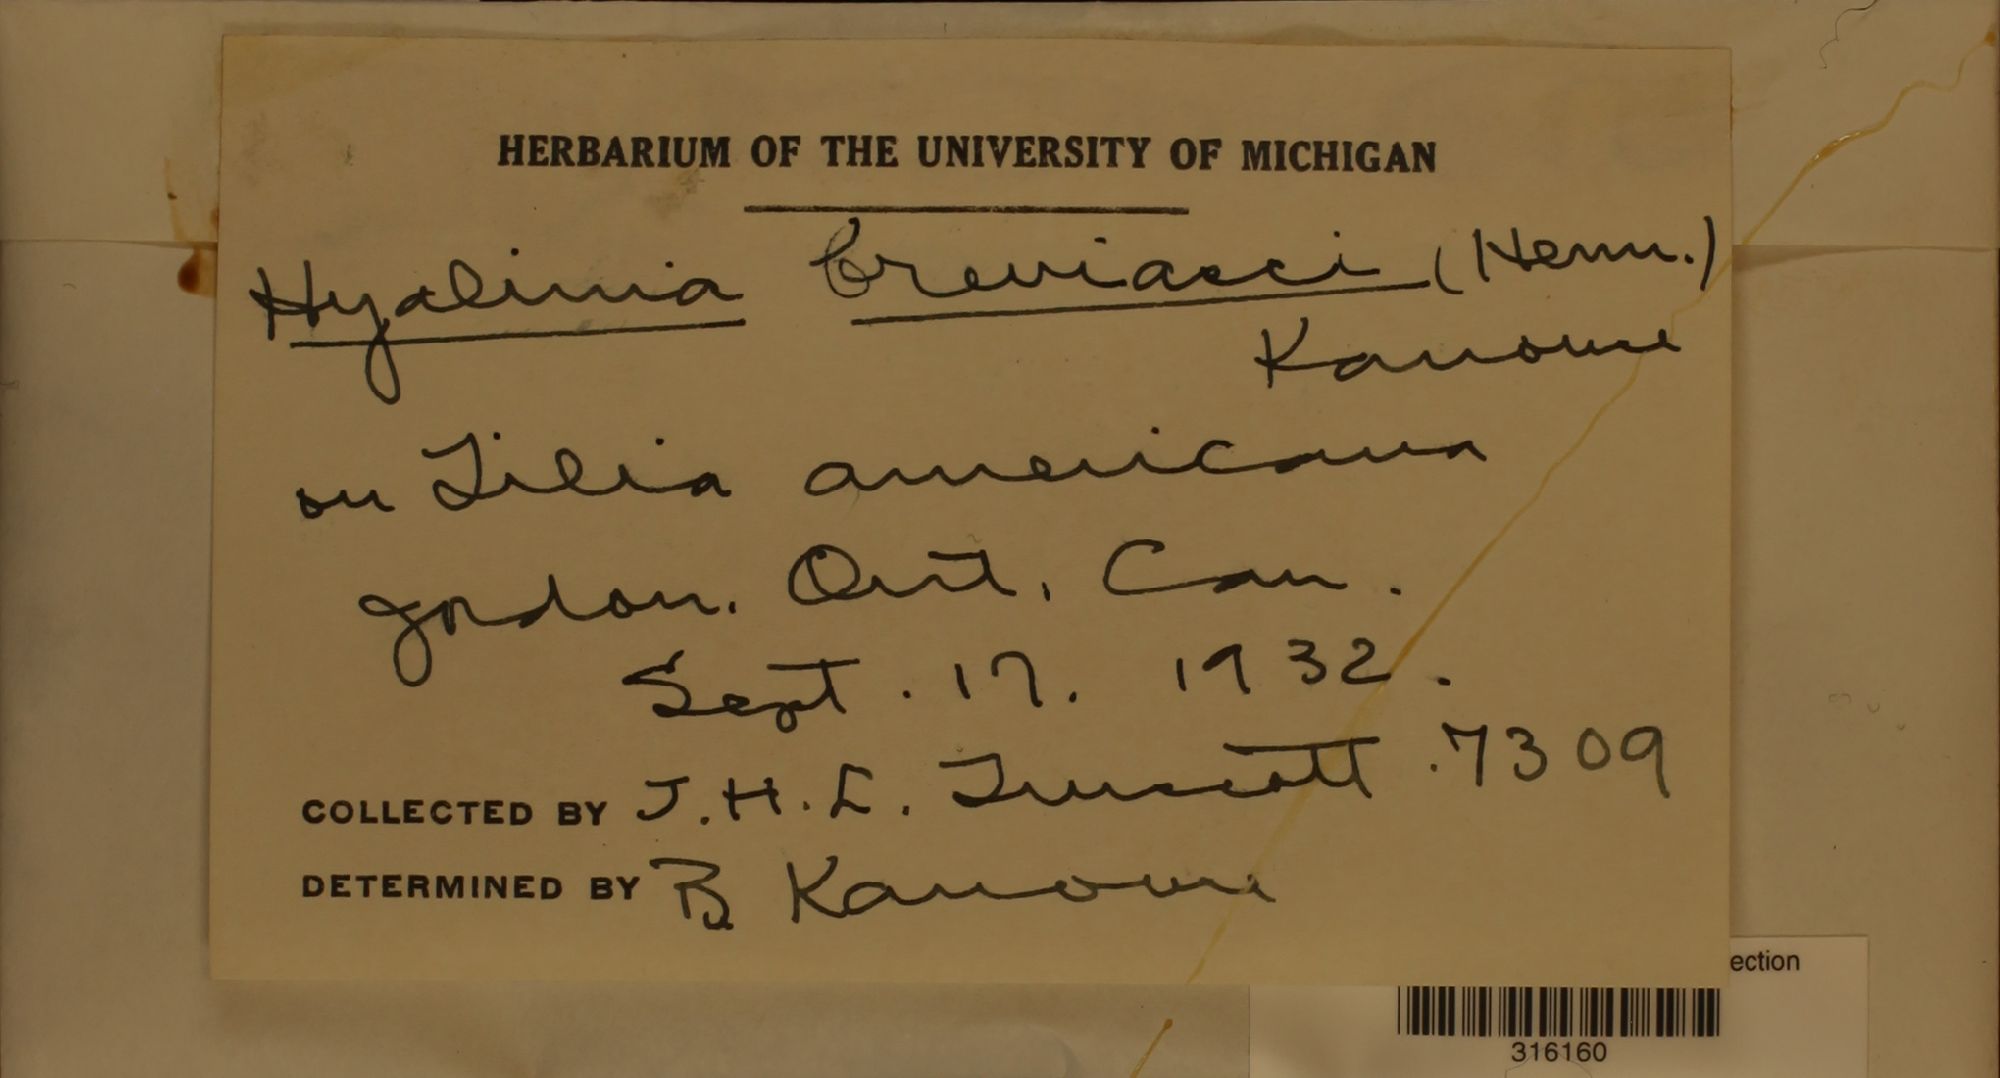 HERBARIUM OF THE UNIVERSITY OF MICHIGAN
Hyalinia breviasci (Henn.)
Kanouse
on Tilia americana
Jordan. Ont. Can.
Sept. 17. 1932.
COLLECTED BY J.H.L. Truscott .7309
DETERMINED BY B Kanouse
ection
316160